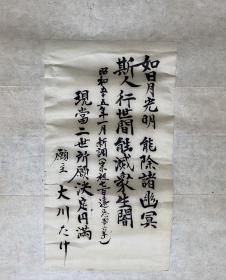 如日月光明 能除諸幽冥
斯人行世間能滅衆生闇
昭和五五年一月新調(宗祖七百遠忌
現當二世所願決定円満
願主 大川たけ